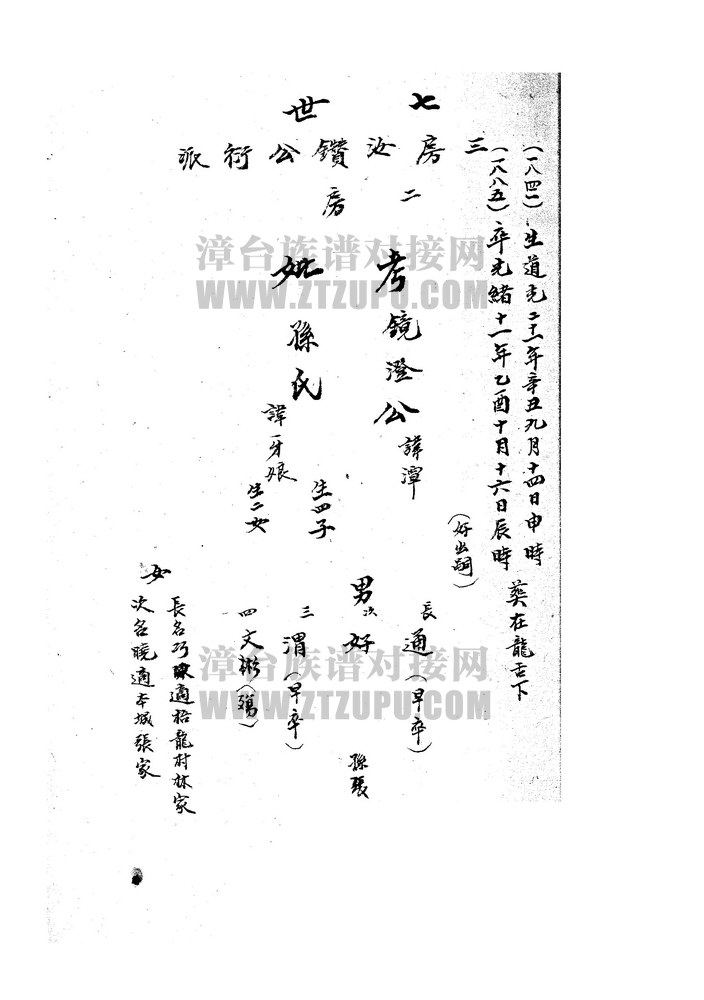 七世
三房汝鑽公衍派
二房
(一八四一)生道光二十一年辛丑九月十四日申時
(一八八五)卒光緒十一年乙酉十月十六日辰時
葬在龍舌下
考鏡澄公
諱潭
妣孫氏
諱牙娘
生四子
生二女
(好出嗣)
男
長通(早卒)
次好
孫張
三渭(早卒)
四文彬(殤)
女
長名巧適梧龍村林家
次名曉適本城張家
漳台族谱对接网
WWW.ZTZUPU.COM
漳台族谱对接网
WWW.ZTZUPU.COM